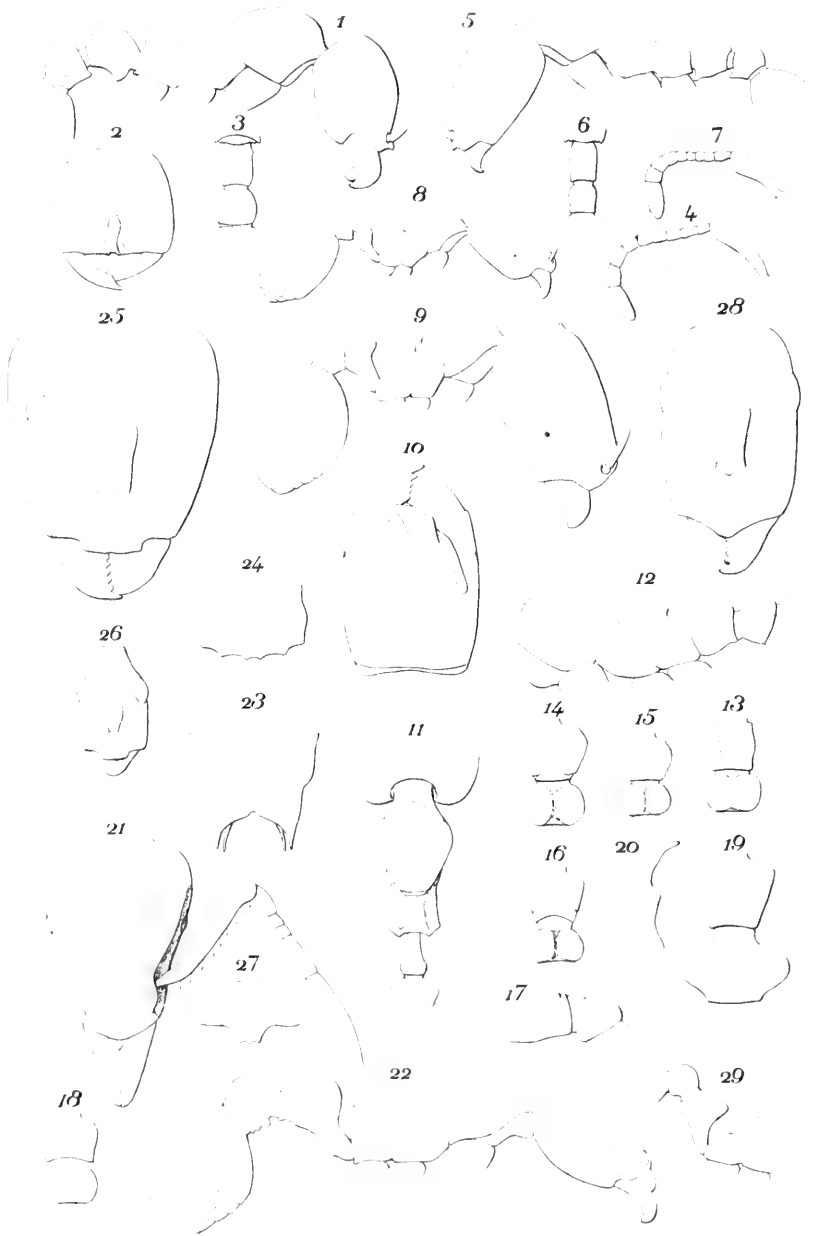 1 5
2 3 6 7
8 4
25 9 28
10
24 12
26
23 11 14 15 13
21 16 20 19
27
17
18 22 29